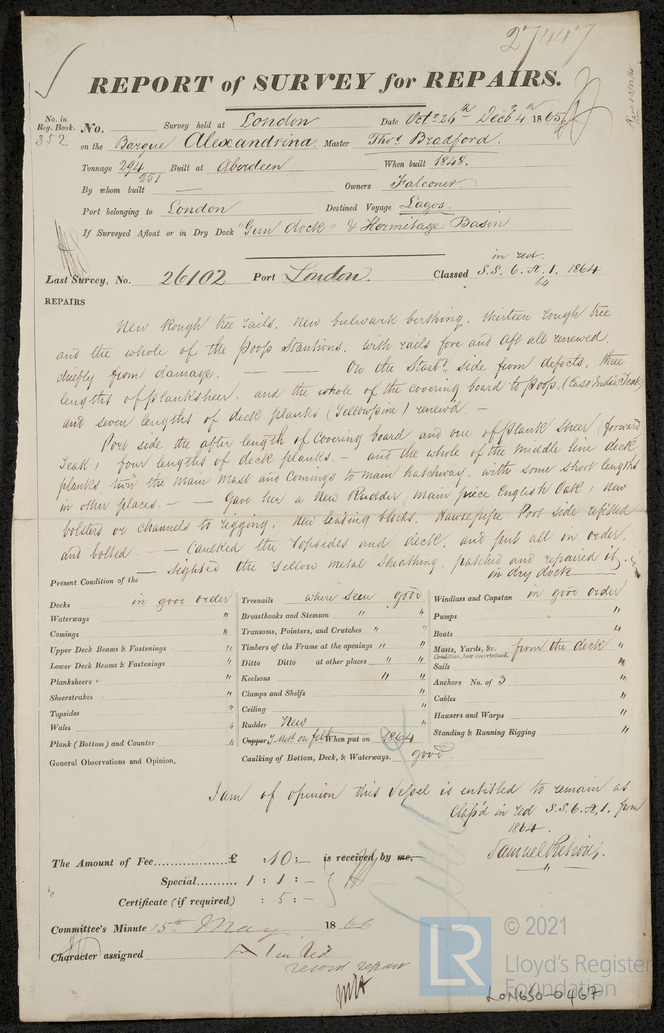 27447
REPORT of SURVEY for REPAIRS.
No. in Reg. Book. 352
No. Survey held at London Date Octr 26th Decbr 4th 1865
on the Barque Alexandrina Master Thos. Bradford.
Tonnage 294 Built at Aberdeen When built 1848.
251
By whom built — Owners Falconer
Port belonging to London Destined Voyage Lagos.
If Surveyed Afloat or in Dry Dock "Gun dock" & Hermitage Basin
in red.
Last Survey, No. 26102 Port London. Classed S.S. 6. A. 1. 1864
64
REPAIRS
New Rough tree rails. New bulwark berthing. thirteen rough tree
and the whole of the Poop Stantions. with rails fore and Aft all renewed.
chiefly from damage. — On the Starbd. side from defects, three
lengths of planksheer. and the whole of the covering board to poop. (East India Teak)
and seven lengths of deck planks (Yellow pine) renew'd. —
Port side the after length of Covering board and one of Plank Sheer (forward
Teak, four lengths of deck planks. — and the whole of the middle line deck
planks, twn the main mast and Comings to main hatchway. with some short lengths
in other places. — — Gave her a New Rudder, main piece English Oak, new
bolsters or channels to rigging, new leading blocks. Hawsepipe Port side refitted
and bolted. — — Caulked the Topsides and deck, and put all in order.
— Sighted the Yellow metal Sheathing, patched and repaired it
in dry dock
Present Condition of the
Decks in good order Treenails where seen good Windlass and Capstan in good order
Waterways " Breasthooks and Stemson " " Pumps "
Comings " Transoms, Pointers, and Crutches " " Boats "
Upper Deck Beams & Fastenings " Timbers of the Frame at the openings " " Masts, Yards, &c. from the deck "
Condition, how ascertained,
Lower Deck Beams & Fastenings " Ditto Ditto at other places " " Sails "
Planksheers " Keelsons " " Anchors No. of 3 "
Sheerstrakes " Clamps and Shelfs " Cables "
Topsides " Ceiling " Hawsers and Warps "
Wales " Rudder New Standing & Running Rigging "
Plank (Bottom) and Counter " Copper Y. Metl on felt When put on 1864
General Observations and Opinion, Caulking of Bottom, Deck, & Waterways. good
I am of opinion this Vessel is entitled to remain as
Class'd in red S.S. 6. A. 1. from
1864.
The Amount of Fee £ :10:— is received by me,
Special 1:1:—
Certificate (if required) :5:—
Committee's Minute 15th May 1866
Character assigned A 1 in Red
record repair
© 2021
LR Lloyd's Register
Foundation
LON650-0467